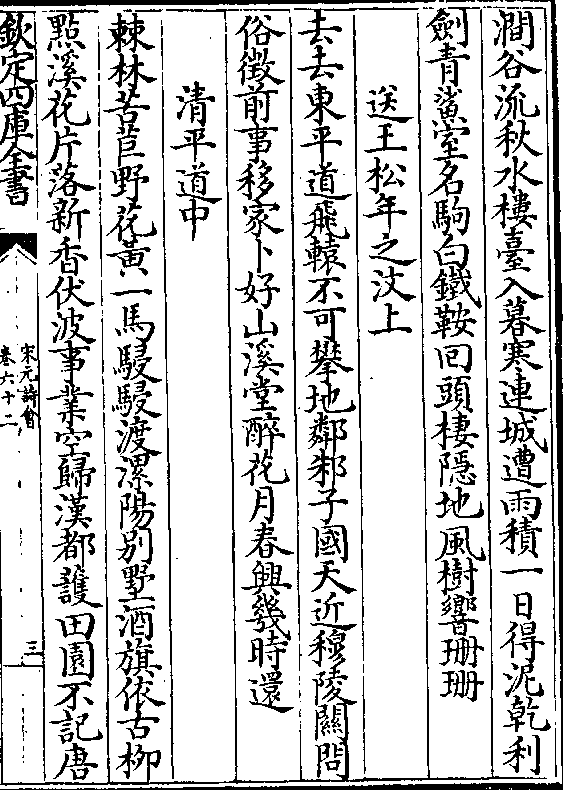 澗谷流秋水樓臺入暮寒連城遭雨積一日得泥乾利
劍青鯊室名駒白鐵鞍回頭棲隱地風樹響珊珊
送王松年之汶上
去去東平道飛轅不可攀地鄰邾子國天近穆陵關問
俗徵前事移家卜好山溪堂醉花月春興幾時還
清平道中
棘林苦苣野花黃一馬駸駸渡漯陽别墅酒旗依古柳
點溪花片落新香伏波事業空歸漢都護田園不記唐
欽定四庫全書
宋元詩會
卷六十二
三